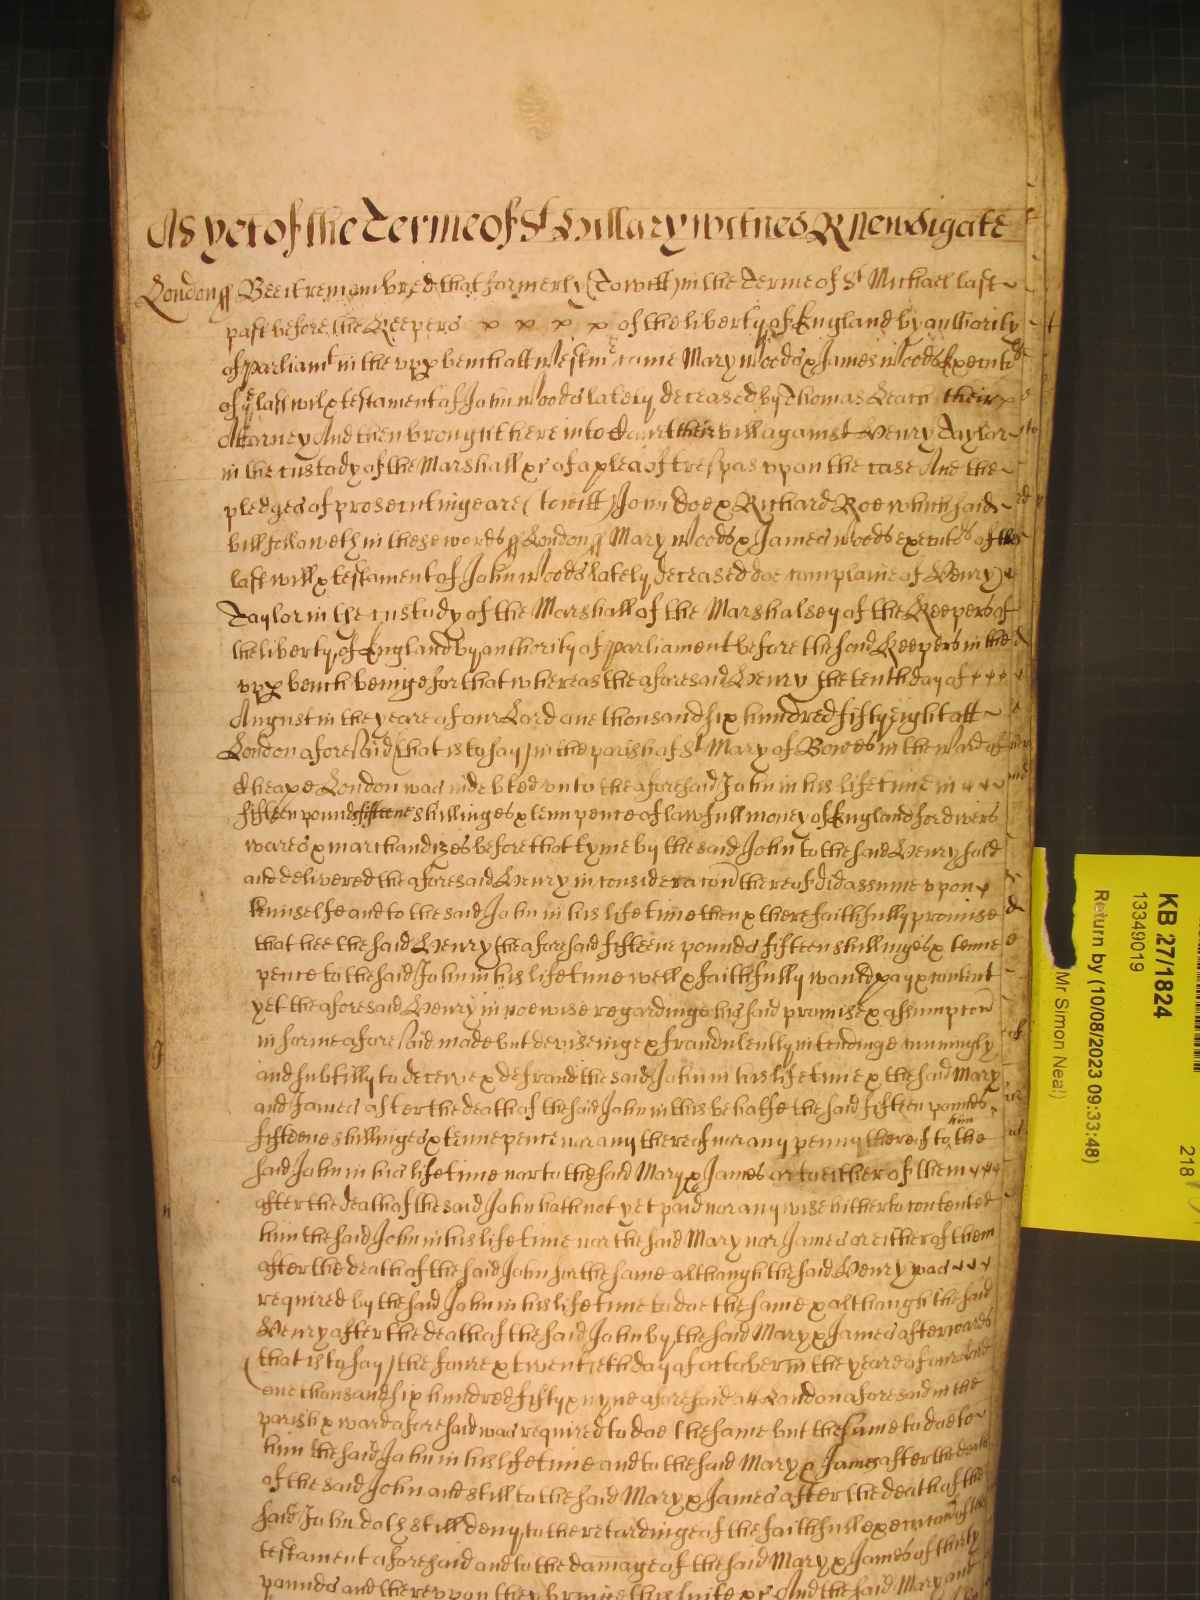 As yet of the Terme of St Hillary witnes R Newdigate
London ss Bee it remembred that formerly (to witt) in the Terme of St Michael last
past before the Keepers x x x x of the liberty of England by authority
of parliamt in the upp bench att Westmr came Mary Woods & James Woods Executrs
of ye last wil & testament of John Woods lately deceased by Thomas Leach their
Attorney And then brought here into Court their bill against Henry Taylor
in the custody of the Marshall &c of a plea of trespas upon the case And the
pledges of prosecutinge are (to witt) John Doe & Richard Roe which said
bill followeth in these words ss London ss Mary Woods & James Woods executrs of the
last will & testament of John Woods lately deceased doe complaine of Henry
Taylor in the custody of the Marshall of the Marshalsey of the Keepers of
the liberty of England by authority of parliament before the said Keepers in the
upp bench beinge for that whereas the aforesaid Henry the tenth day of
August in the yeare of our Lord one thousand six hundred fifty eight att
London aforesaid (that is to say) in the parish of St Mary of Bowes in the Ward of
Cheape London was indebted unto the aforesaid John in his lifetime in
fifteen pounds fifteene shillinges & tenn pence of lawfull money of England for divers
wares & marchandizes before that tyme by the said John to the said Henry sold
and delivered the aforesaid Henry in consideracon thereof did assume upon
himselfe and to the said John in his life time then & there faithfully promise
that hee the said Henry the aforesaid fifteene pounds fifteen shillinges & tenne
pence to the said John in his lifetime well & faithfully would pay & content
yet the aforesaid Henry in noe wise regardinge his said promise & assumpcon
in forme aforesaid made but deviseinge & fraudulently intendinge cunningly
and subtilly to deceive & defraud the said John in his life time & the said Mary
and James after the death of the said John in this behalfe the said fifteen pounds
fifteene shillinges & tenne pence nor any thereof nor any penny thereof to him the
said John in his life time nor to the said Mary & James or to either of them
after the death of the said John hath not yet paid nor any wise hitherto contented
him the said John in his life time nor the said Mary nor James or either of them
after the death of the said John for the same although the said Henry was
required by the said John in his life time to doe the same & although the said
Henry after the death of the said John by the said Mary & James afterwards
(that is to say) the foure & twentieth day of october in the yeare of our Lord
one thousand six hundred fifty & nyne aforesaid att London aforesaid in the
parish & ward aforesaid was required to doe the same but the same to doe to
him the said John in his life time and to the said Mary & James after the death
of the said John and still to the said Mary & James after the death of the
said John doth still deny to the retardinge of the faithfull execucon of the
testament aforesaid and to the damage of the said Mary & James of thirty
pounds and thereupon they bringe this suite &c And the said Mary and
KB 27/1824
13349019
Return by (10/08/2023 09:33:48)
Mr Simon Neal)
218